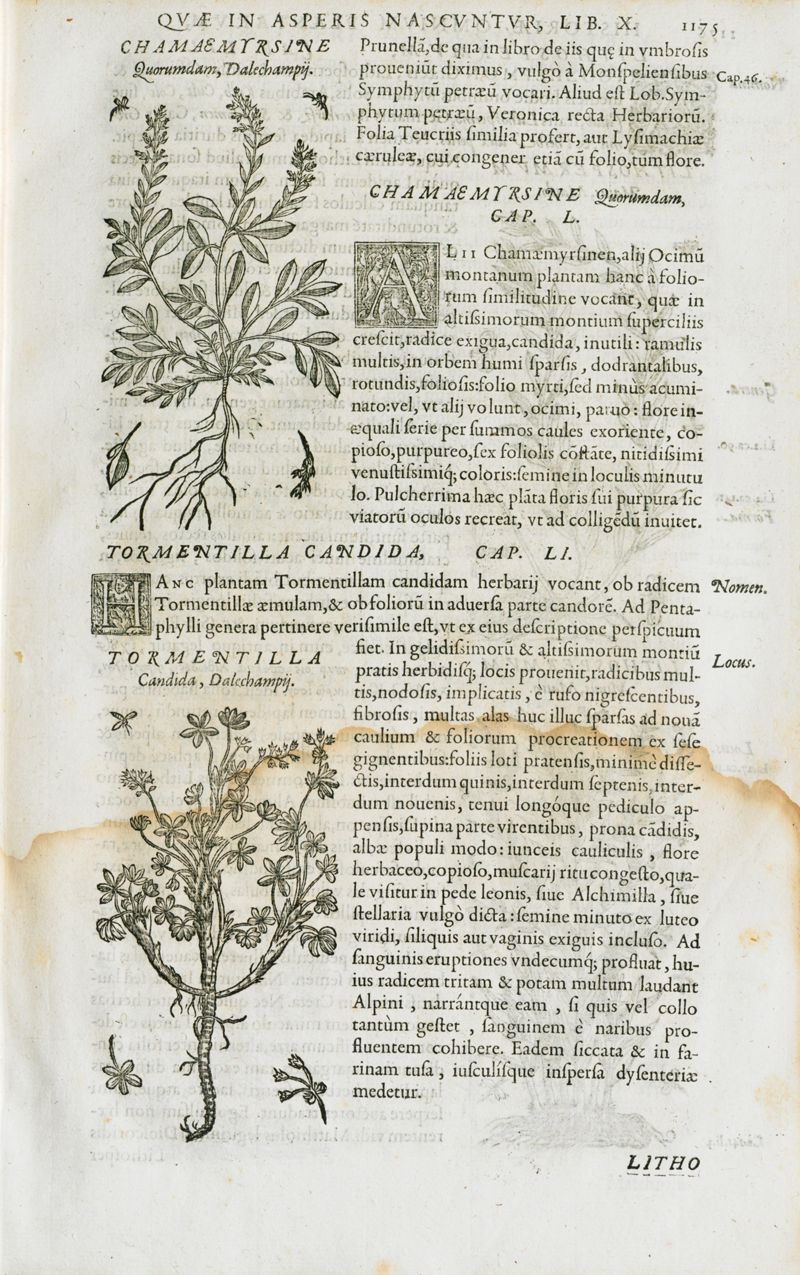 QVÆ IN ASPERIS NASCVNTVR, LIB. X. 1175
CHAMAEMYRSINE
Quorumdam, Dalechampij.
Prunellã, de qua in libro de iis quę in vmbrosis
proueniũt diximus, vulgò à Monſpelienſibus
Cap. 46.
Symphytũ petræũ vocari. Aliud eſt Lob. Sym-
phytum petræũ, Veronica recta Herbariorũ.
Folia Teucriis ſimilia profert, aut Lyſimachiæ
cæruleæ, cui congener etiã cũ folio, tum flore.
CHAMAEMYRSINE Quorumdam,
CAP. L.
ALII Chamæmyrſinen, alij Ocimũ
montanum plantam hanc à folio-
rum ſimilitudine vocant, quæ in
altiſsimorum montium ſuperciliis
creſcit, radice exigua, candida, inutili: ramulis
multis, in orbem humi ſparſis, dodrantalibus,
rotundis, folioſis: folio myrti, ſed minùs acumi-
nato: vel, vt alij volunt, ocimi, paruo: flore in-
æquali ſerie per ſummos caules exoriente, co-
pioſo, purpureo, ſex foliolis cõſtãte, nitidiſsimi
venuſtiſsimiq́; coloris: ſemine in loculis minutu
lo. Pulcherrima hæc plãta floris ſui purpura ſic
viatorũ oculos recreat, vt ad colligẽdũ inuitet.
TORMENTILLA CANDIDA, CAP. LI.
HANC plantam Tormentillam candidam herbarij vocant, ob radicem
Nomen.
Tormentillæ æmulam, & ob foliorũ in aduerſa parte candorẽ. Ad Penta-
phylli genera pertinere veriſimile eſt, vt ex eius deſcriptione perſpicuum
TORMENTILLA
Candida, Dalechampij.
fiet. In gelidiſsimorũ & altiſsimorum montiũ
Locus.
pratis herbidiſq́; locis prouenit, radicibus mul-
tis, nodoſis, implicatis, è rufo nigreſcentibus,
fibroſis, multas alas huc illuc ſparſas ad nouã
caulium & foliorum procreationem ex ſeſe
gignentibus: foliis loti pratenſis, minimè diſſe-
ctis, interdum quinis, interdum ſeptenis, inter-
dum nouenis, tenui longóque pediculo ap-
penſis, ſupina parte virentibus, prona cãdidis,
albæ populi modo: iunceis cauliculis, flore
herbaceo, copioſo, muſcarij ritu congeſto, qua-
le viſitur in pede leonis, ſiue Alchimilla, ſiue
ſtellaria vulgò dicta: ſemine minuto ex luteo
viridi, ſiliquis aut vaginis exiguis incluſo. Ad
ſanguinis eruptiones vndecumq́; profluat, hu-
ius radicem tritam & potam multum laudant
Alpini, narrántque eam, ſi quis vel collo
tantùm geſtet, ſanguinem è naribus pro-
fluentem cohibere. Eadem ſiccata & in fa-
rinam tuſa, iuſculíſque inſperſa dyſenteriæ
medetur.
LITHO